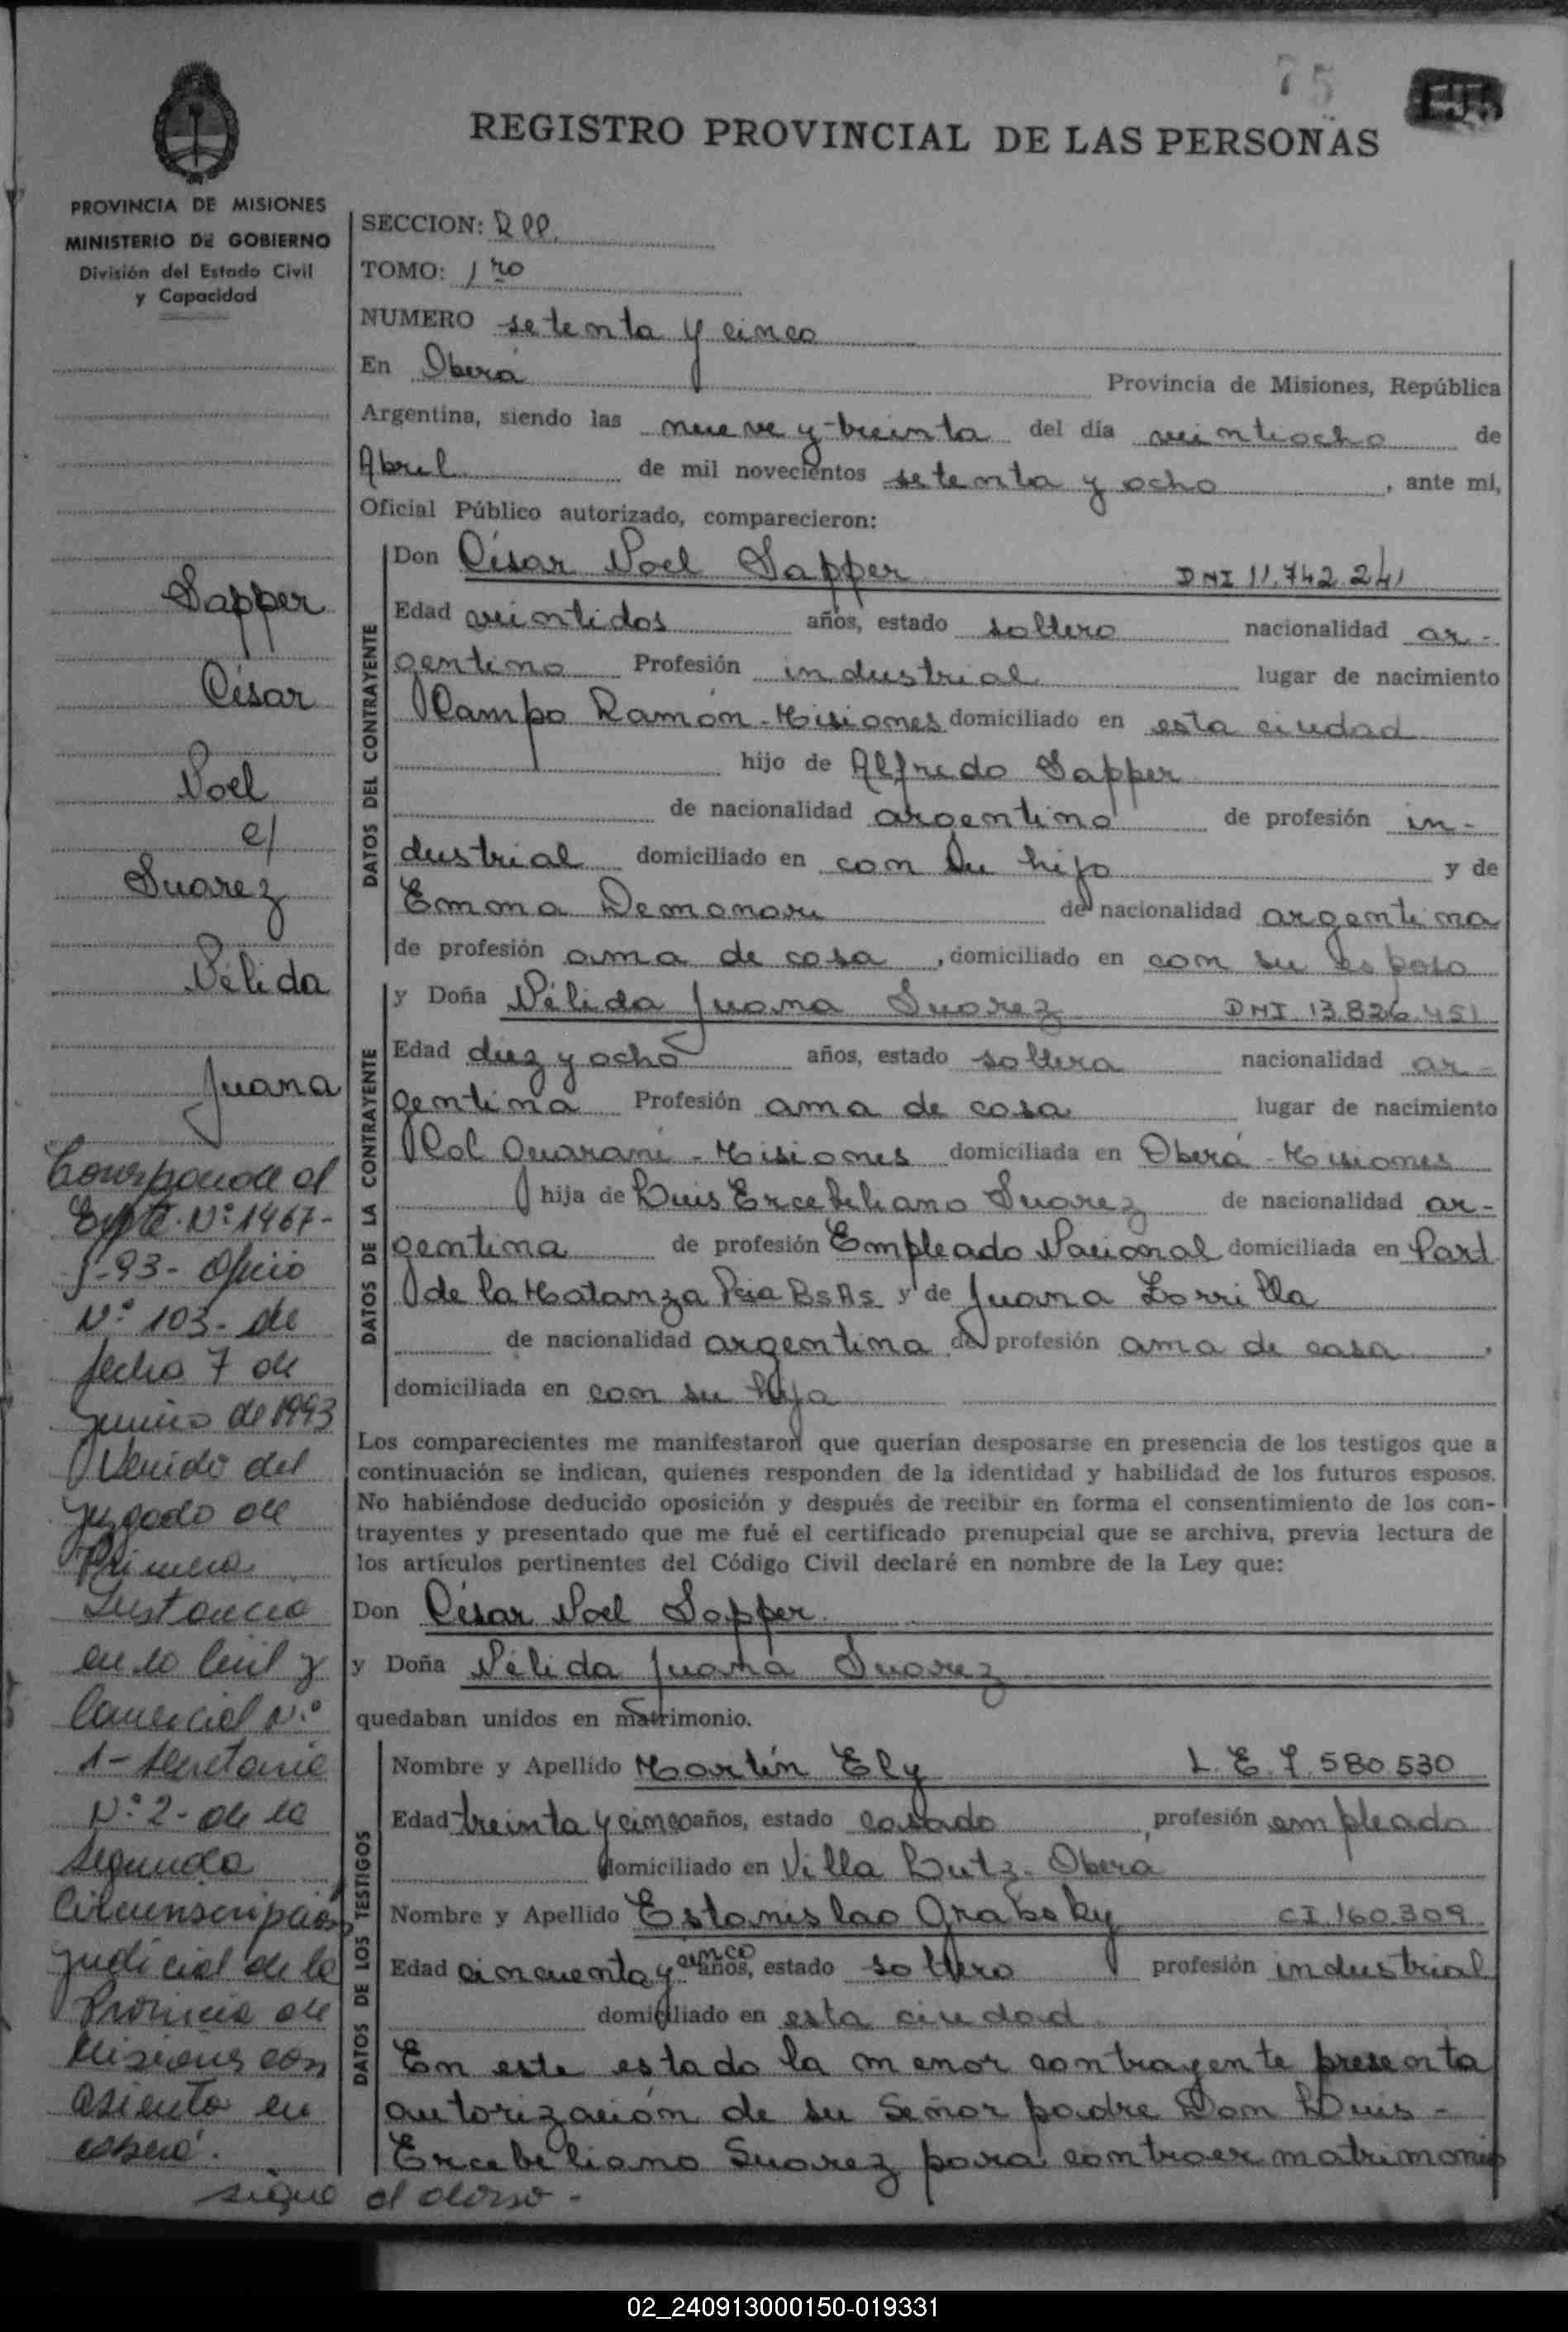 75
REGISTRO PROVINCIAL DE LAS PERSONAS
PROVINCIA DE MISIONES
MINISTERIO DE GOBIERNO
División del Estado Civil
y Capacidad
Sapper
César
Noel
c/
Suarez
Nélida
Juana
Corresponde al
Expte. Nº 1467-
-93- Oficio
Nº 103- de
fecha 7 de
junio de 1993
Venido del
Juzgado de
Primera
Instancia
en lo Civil y
Comercial Nº
1- Secretaria
Nº 2- de la
Segunda
Circunscripción
Judicial de la
Provincia de
Misiones con
asiento en
Oberá.
sigue al dorso-
SECCION: RPP.
TOMO: 1ro
NUMERO setenta y cinco
En Oberá Provincia de Misiones, República
Argentina, siendo las nueve y treinta del día veintiocho de
Abril de mil novecientos setenta y ocho, ante mí,
Oficial Público autorizado, comparecieron:
DATOS DEL CONTRAYENTE
Don César Noel Sapper DNI 11.742.241
Edad veintidos años, estado soltero nacionalidad ar-
gentino Profesión industrial lugar de nacimiento
Campo Ramón - Misiones domiciliado en esta ciudad
hijo de Alfredo Sapper
de nacionalidad argentino de profesión in-
dustrial domiciliado en con su hijo y de
Emma Demonari de nacionalidad argentina
de profesión ama de casa, domiciliado en con su esposo
DATOS DE LA CONTRAYENTE
y Doña Nélida Juana Suarez DNI 13.826.451
Edad diez y ocho años, estado soltera nacionalidad ar-
gentina Profesión ama de casa lugar de nacimiento
Col Guaraní - Misiones domiciliada en Oberá - Misiones
hija de Luis Ercebeliano Suarez de nacionalidad ar-
gentina de profesión Empleado Nacional domiciliada en Part
de la Matanza Pcia Bs As y de Juana Zorrilla
de nacionalidad argentina de profesión ama de casa,
domiciliada en con su hija
Los comparecientes me manifestaron que querían desposarse en presencia de los testigos que a
continuación se indican, quienes responden de la identidad y habilidad de los futuros esposos.
No habiéndose deducido oposición y después de recibir en forma el consentimiento de los con-
trayentes y presentado que me fué el certificado prenupcial que se archiva, previa lectura de
los artículos pertinentes del Código Civil declaré en nombre de la Ley que:
Don César Noel Sapper
y Doña Nélida Juana Suarez
quedaban unidos en matrimonio.
DATOS DE LOS TESTIGOS
Nombre y Apellido Martín Ely L. E. 7.580.530
Edad treinta y cinco años, estado casado, profesión empleado
domiciliado en Villa Lutz - Oberá
Nombre y Apellido Estanislao Grabsky CI.160.309
Edad cincuenta y cinco años, estado soltero profesión industrial
domiciliado en esta ciudad
En este estado la menor contrayente presenta
autorización de su Señor padre Don Luis -
Ercebeliano Suarez para contraer matrimonio
02_240913000150-019331